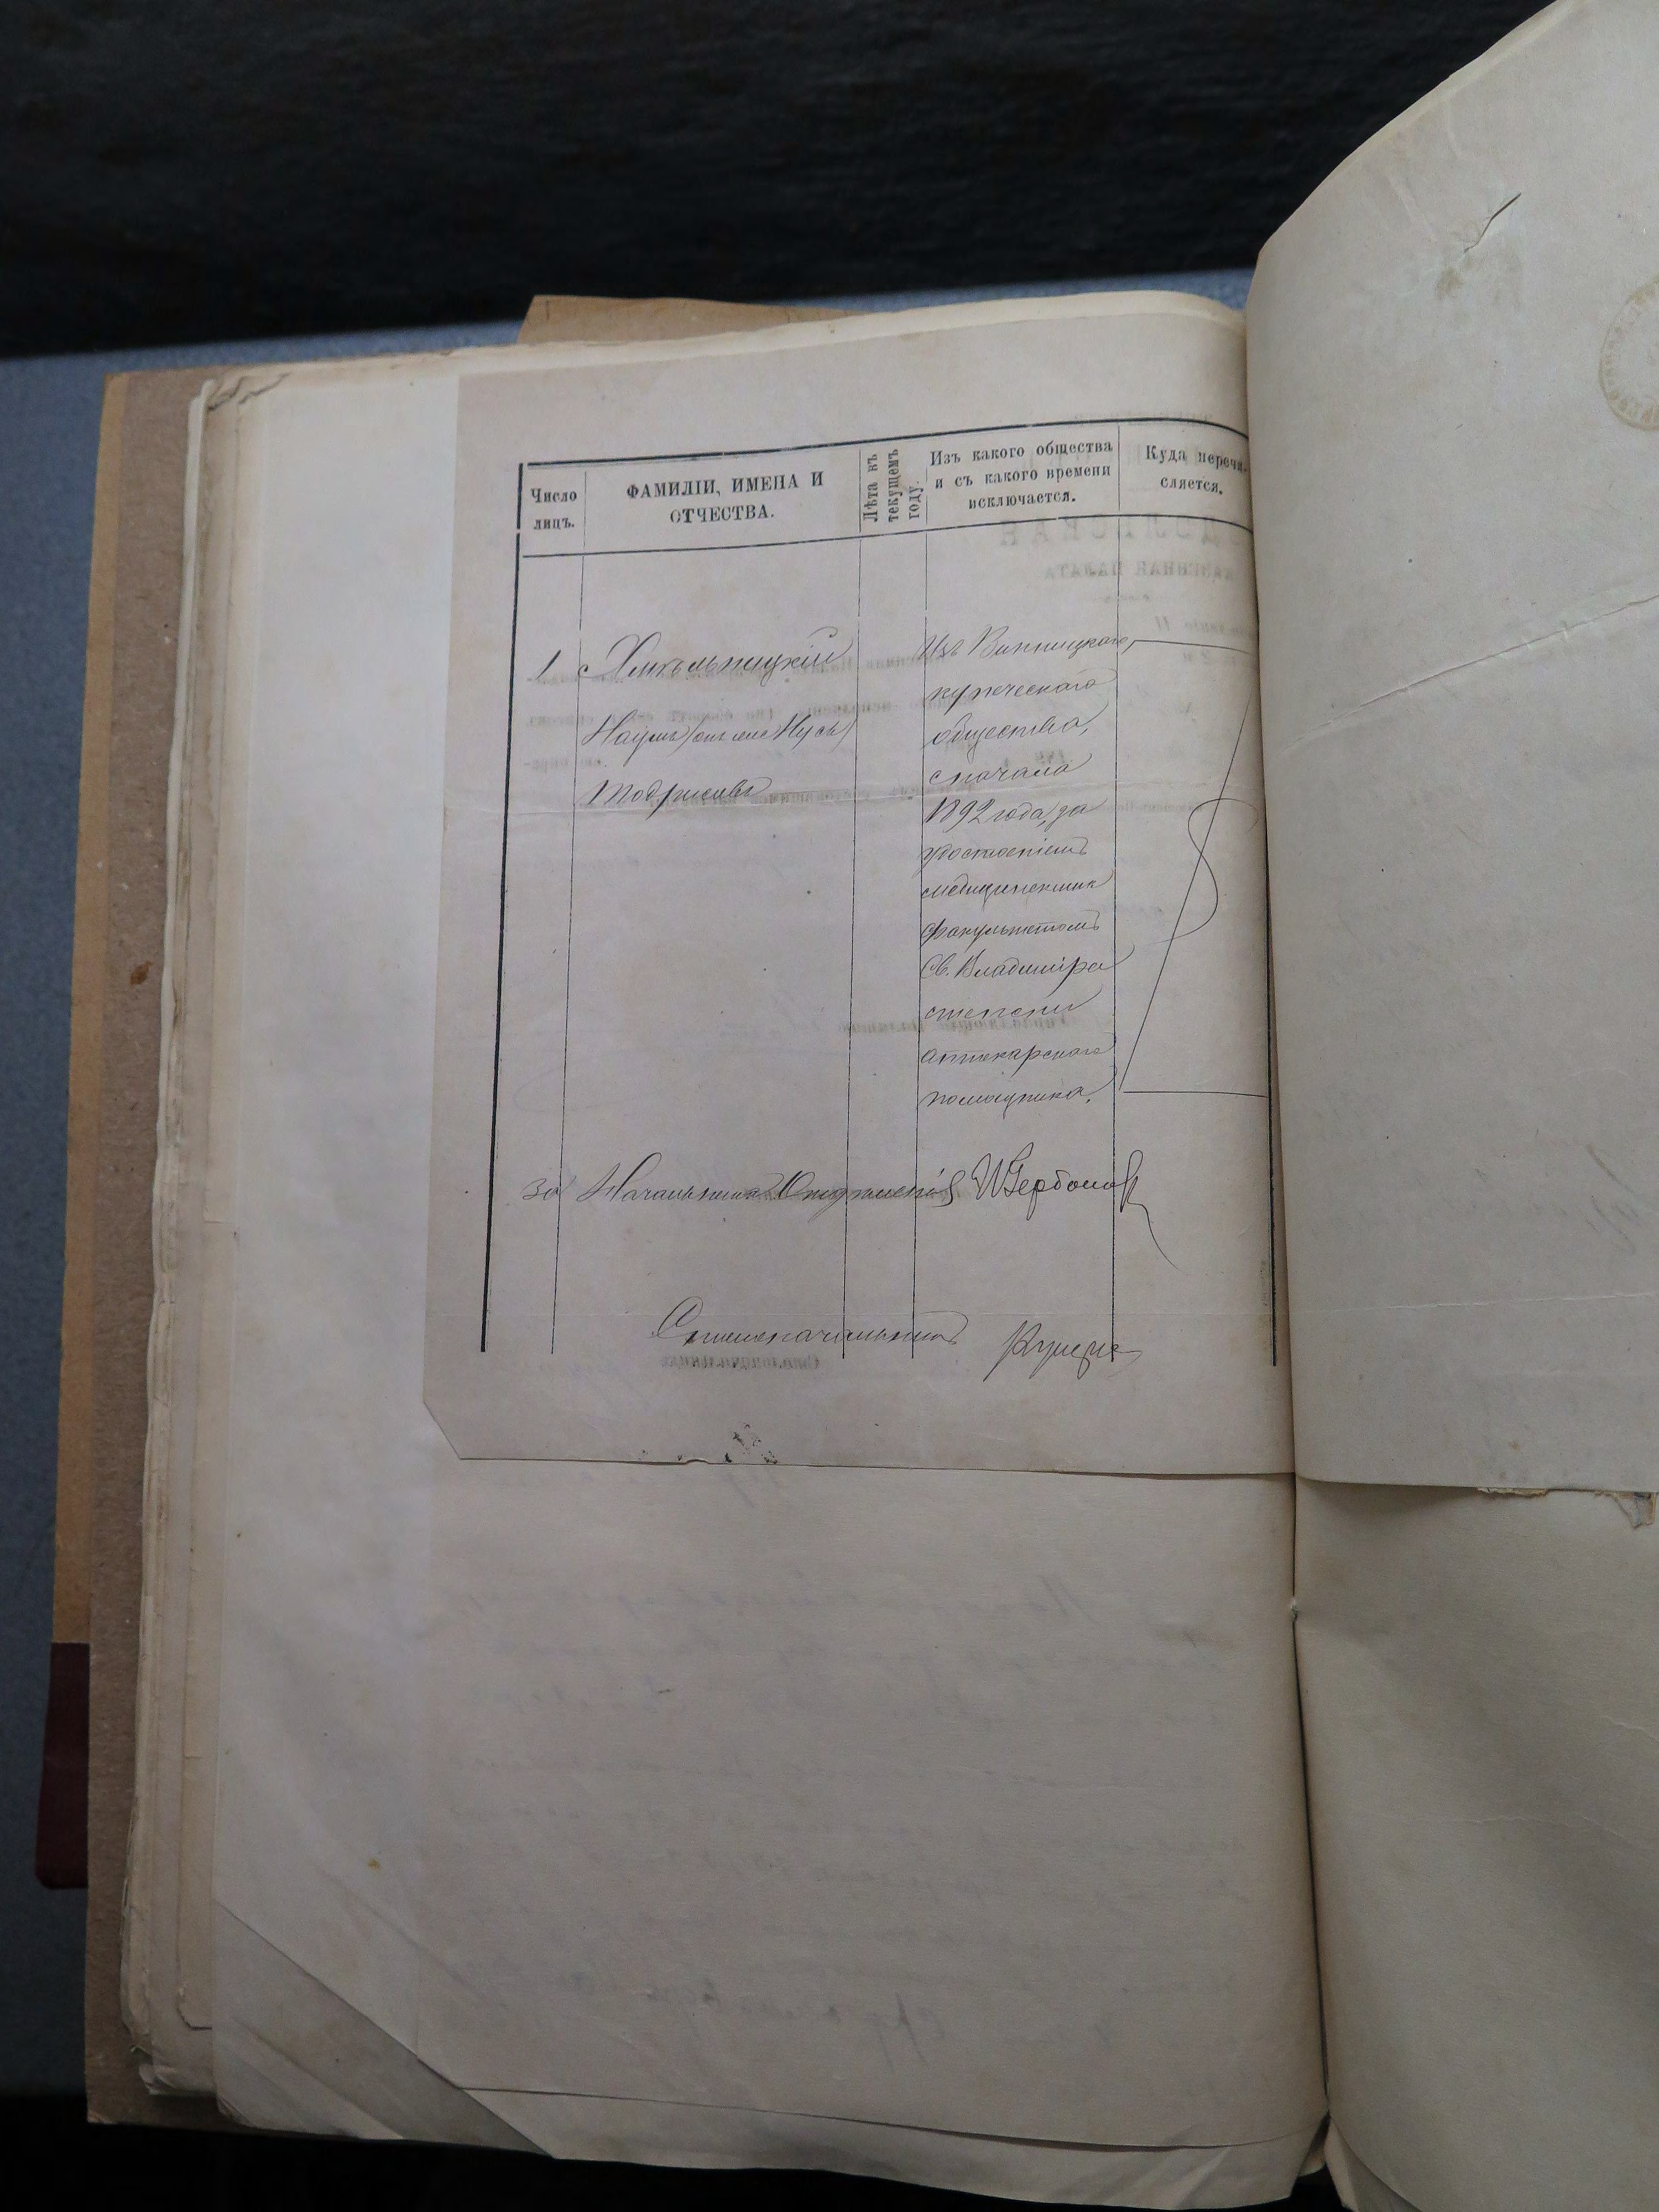 Число лицъ.
ФАМИЛІИ, ИМЕНА И ОТЧЕСТВА.
Лѣта въ текущемъ году.
Изъ какого общества и съ какого времени исключается.
Куда перечи-
сляется.
1
Хмѣльницкій
Наумъ (онъ же Нусъ)
Тодрисовъ
Изъ Винницкаго
купеческаго
общества,
сначала
1892 года, за
удостоеніемъ
медицинскимъ
факультетомъ
Св. Владиміра
степени
аптекарскаго
помощника.
За Начальника Отдѣленія
Столоначальникъ